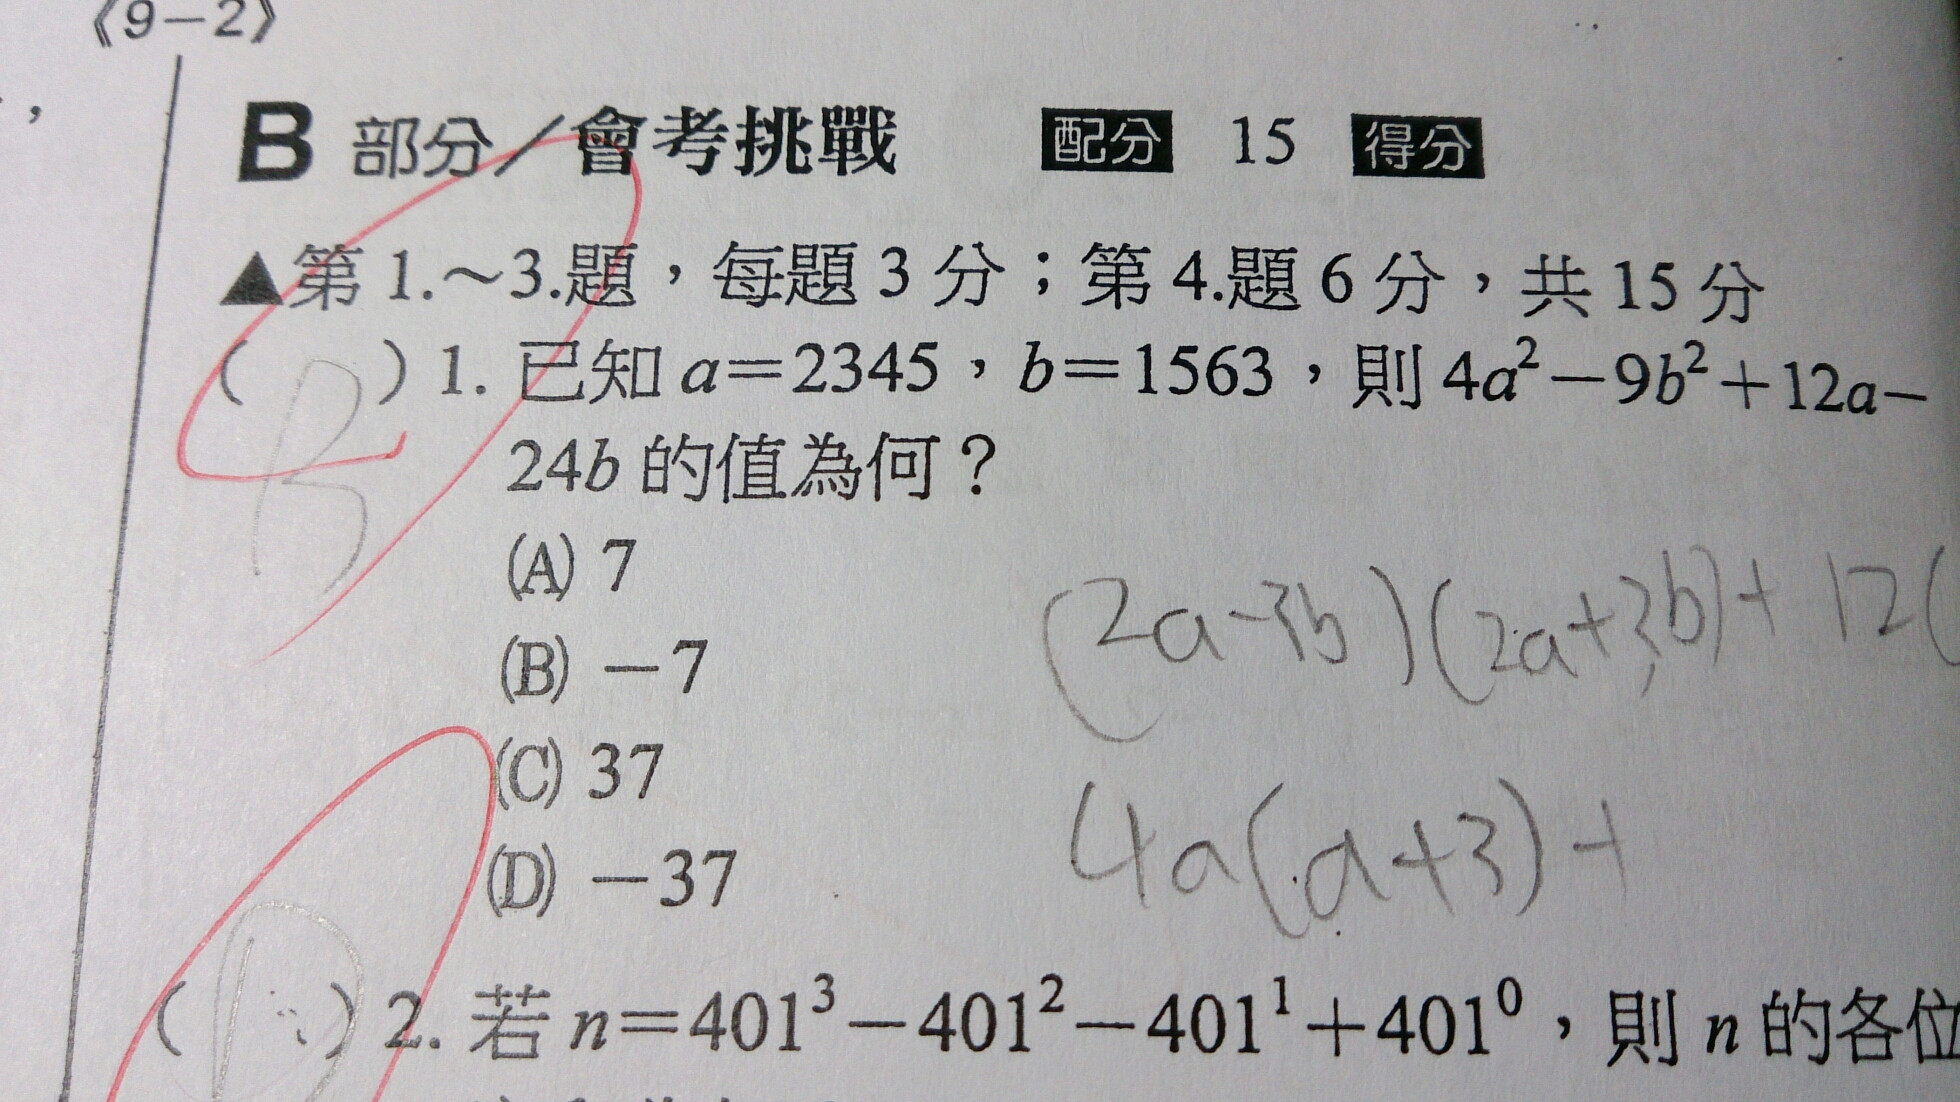 《9－2》
B 部分／會考挑戰 配分 15 得分
▲第 1.～3.題，每題 3 分；第 4.題 6 分，共 15 分
（B）1. 已知 a＝2345，b＝1563，則 4a²－9b²＋12a－
24b 的值為何？
(A) 7
(B) －7
(2a-3b)(2a+3b)+12(
(C) 37
(D) －37
4a(a+3)+
（D）2. 若 n＝401³－401²－401¹＋401⁰，則 n 的各位